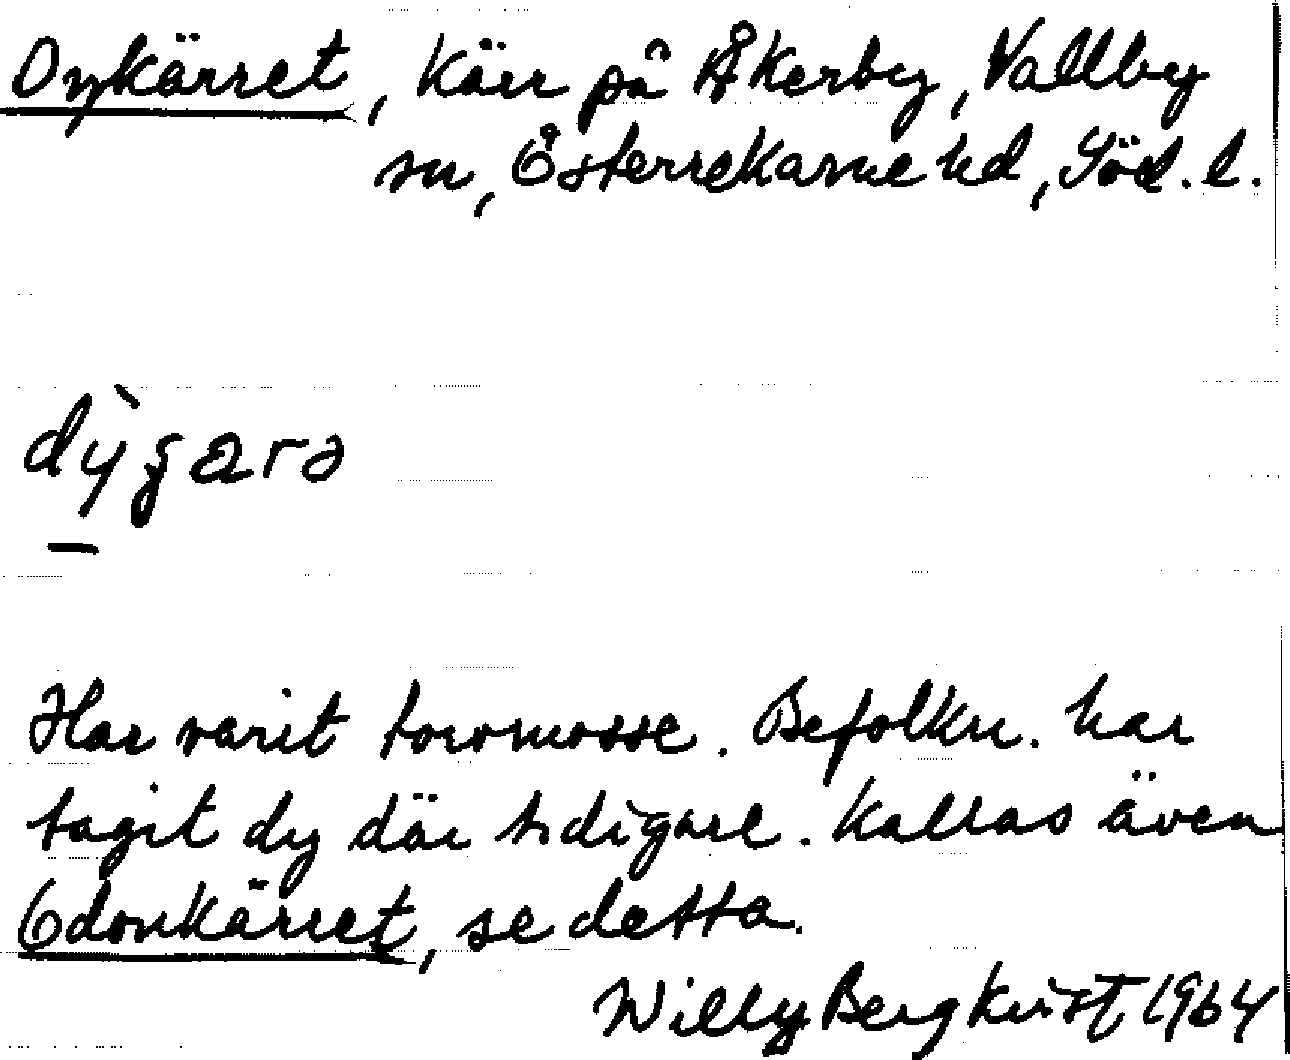 Dykärret, Kärr på Åkerby, Vallby
sn, Österrekarne hd, Söd. l.
dỳʒarə
Har varit torvmosse. Befolkn. har
tagit dy där tidigare. Kallas även
Odonkärret, se detta.
Willy Bergkvist 1964